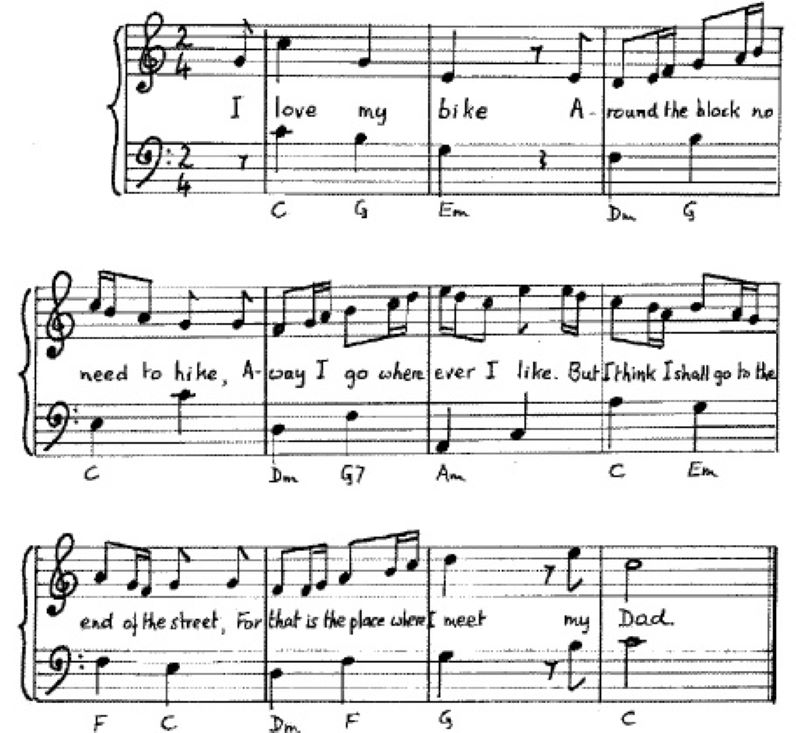 2 4
I love my bike A-round the block no
2 4
C G Em Dm G
need to hike, A-way I go where ever I like. But I think I shall go to the
C Dm G7 Am C Em
end of the street, For that is the place where I meet my Dad.
F C Dm F G C